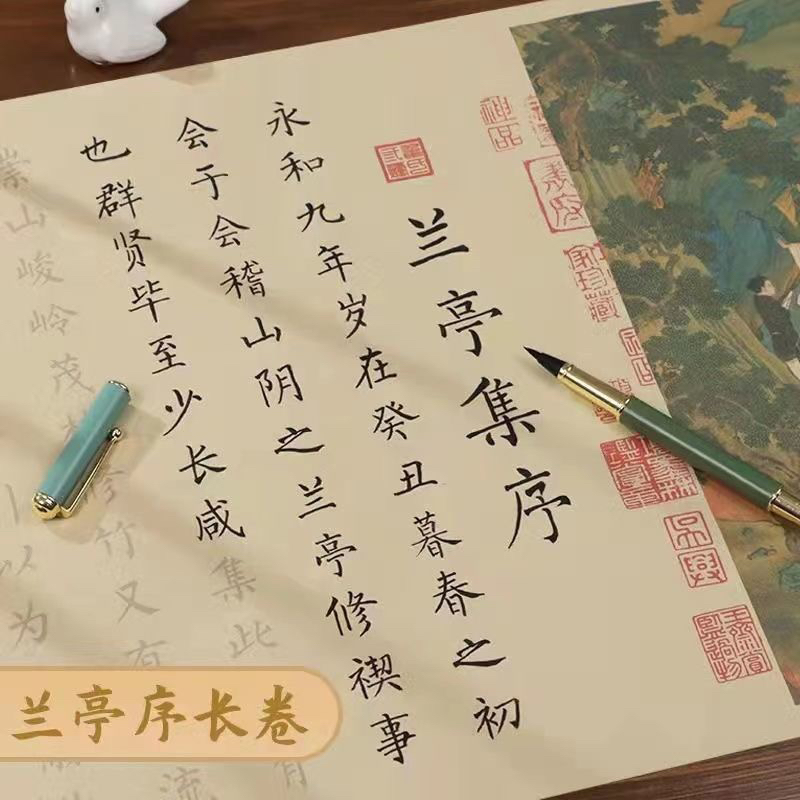 兰亭集序
永和九年岁在癸丑暮春之初
会于会稽山阴之兰亭修禊事
也群贤毕至少长咸集此
崇山峻岭茂
修竹又有
以为
流
神品
珍藏
兰亭序长卷